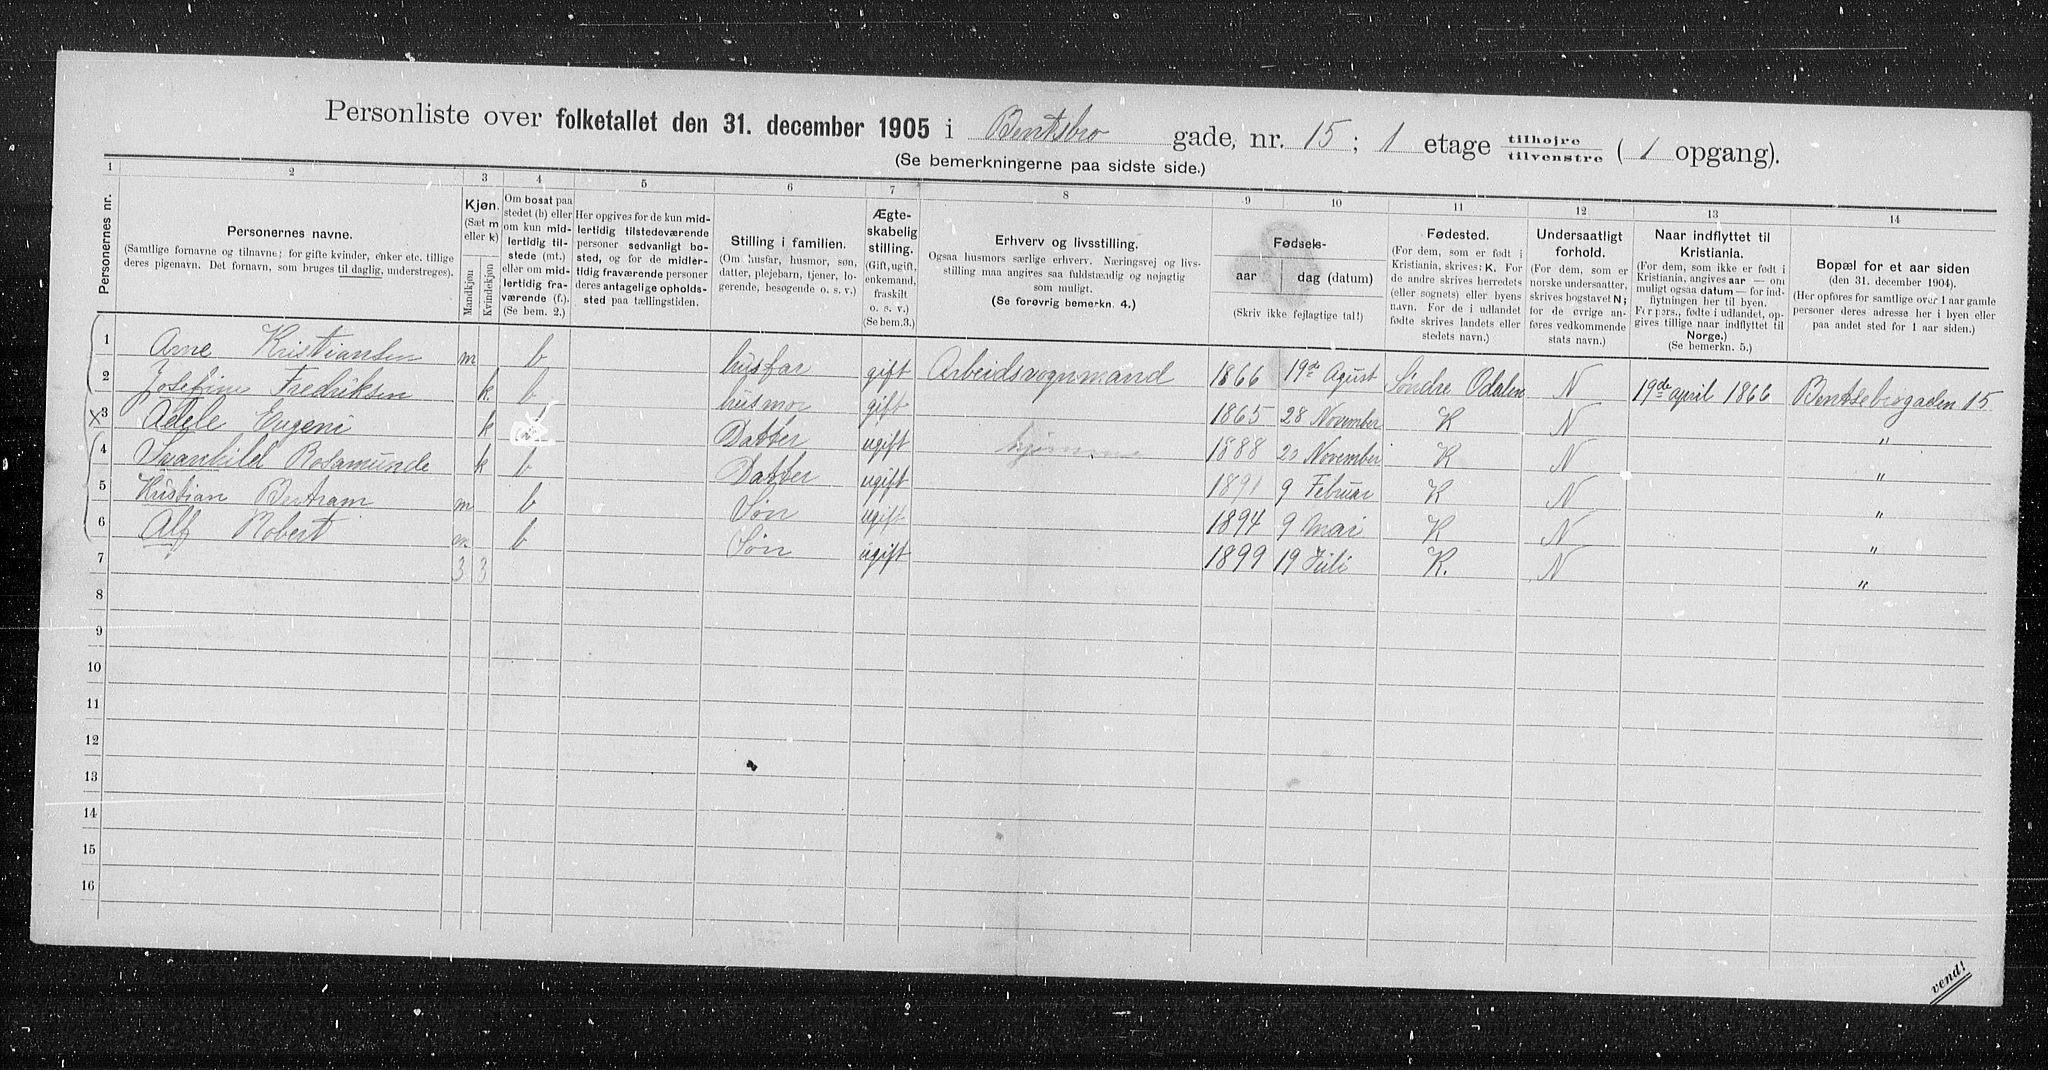 Personliste over folketallet den 31. december 1905 i Bentsbro gade, nr. 15; 1 etage tilhøjre tilvenstre ( 1 opgang).
(Se bemerkningerne paa sidste side.)
1 2 3 4 5 6 7 8 9 10 11 12 13 14
Personernes nr.
Personernes navne.
(Samtlige fornavne og tilnavne; for gifte kvinder, enker etc. tillige
deres pigenavn. Det fornavn, som bruges til daglig, understreges).
Kjøn.
(Sæt m
eller k)
Mandkjøn
Kvindekjøn
Om bosat paa
stedet (b) eller
om kun mid-
lertidig til-
stede (mt.)
eller om mid-
lertidig fra-
værende (f.).
(Se bem. 2.)
Her opgives for de kun mid-
lertidig tilstedeværende
personer sedvanlig bo-
sted, og for de midler-
tidig fraværende personer
deres antagelige opholds-
sted paa tællingstiden.
Stilling i familien.
(Om husfar, husmor, søn,
datter, plejebarn, tjener, lo-
gerende, besøgende o. s. v.)
Ægte-
skabelig
stilling.
(Gift, ugift,
enkemand,
fraskilt
o. s. v.)
(Se bem.3.)
Erhverv og livsstilling.
Ogsaa husmors særlige erhverv. Næringsvej og livs-
stilling maa angives saa fuldstændig og nøjagtig
som muligt.
(Se forøvrig bemerkn. 4.)
Fødsels-
aar dag (datum)
(Skriv ikke fejlagtige tal!)
Fødested.
(For dem, som er født i
Kristiania, skrives: K. For
de andre skrives herredets
(eller sognets) eller byens
navn. For de i udlandet
fødte skrives landets eller
stedets navn.)
Undersaatligt
forhold.
(For dem, som er
norske undersaatter,
skrives bogstavet N;
for de øvrige an-
føres vedkommende
stats navn.)
Naar indflyttet til
Kristiania.
(For dem, som ikke er født i
Kristiania, angives aar — om
muligt ogsaa datum — for ind-
flytningen her til byen.
For pers., fødte i udlandet, op-
gives tillige naar indflyttet til
Norge.)
(Se bemerkn. 5.)
Bopæl for et aar siden
(den 31. december 1904).
(Her opføres for samtlige over 1 aar gamle
personer deres adresse her i byen eller
paa andet sted for 1 aar siden.)
1 Arne Kristiansen m b husfar gift Arbeidsvognmand 1866 19de Agust Søndre Odalen N 19de april 1866 Bentsebrogaden 15
2 Josefine Fredriksen k b husmor gift 1865 28 November K N "
x3 Adele Eugeni k Datter ugift hjemme 1888 20 November K N "
4 Svanhild Rosamunde k b Datter ugift 1891 9 Februar K N "
5 Kristian Bertram m b Søn ugift 1894 9 mai K N "
6 Alf Robert m b Søn ugift 1899 19 Juli K. N "
7 3 3
8
9
10
11
12
13
14
15
16
vend!